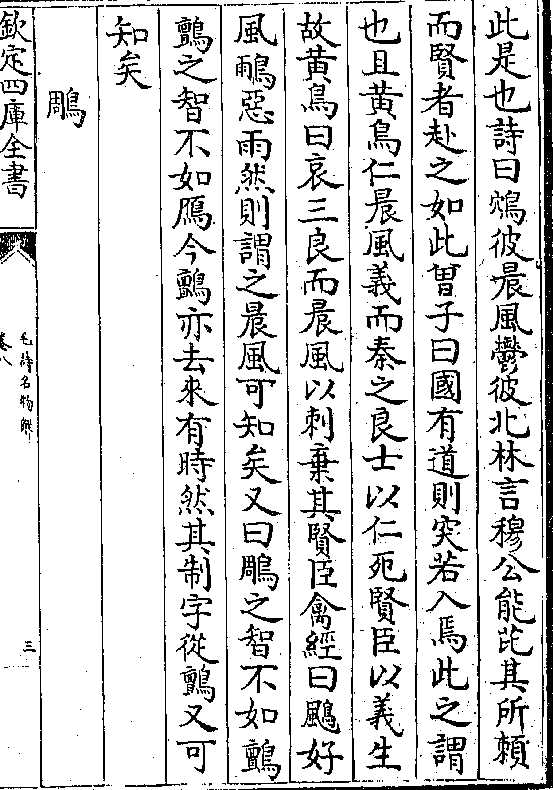 此是也詩曰鴥彼晨風鬱彼北林言穆公能芘其所賴
而賢者赴之如此曽子曰國有道則突若入焉此之謂
也且黄鳥仁晨風義而秦之良士以仁死賢臣以義生
故黄鳥曰哀三良而晨風以刺棄其賢臣禽經曰鶌好
風鴯惡雨然則謂之晨風可知矣又曰鵰之智不如鸇
鸇之智不如鴈今鸇亦去來有時然其制字從鸇又可
知矣
鵰
欽定四庫全書
毛詩名物解
卷八
三